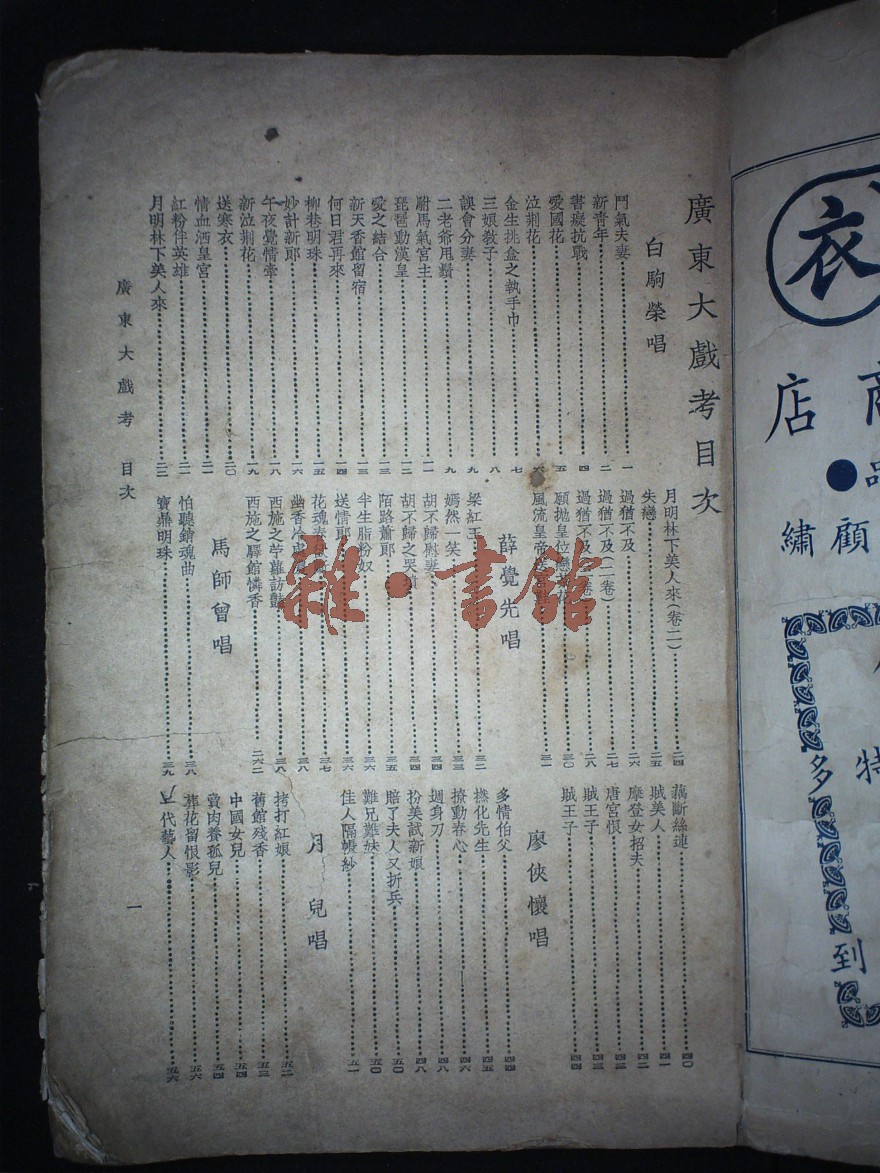 廣東大戲考目次
白駒榮唱
鬥氣夫妻 一
新青年 二
書癡抗戰 四
愛國花 五
泣荆花 六
金生挑盒之執手巾 七
三娘教子 八
誤會分妻 九
二老爺甩鬚 九
駙馬氣宮主 一一
琵琶動漢皇 一二
愛之結合 一三
新天香館留宿 一三
何日君再來 一四
柳巷明珠 一五
妙計新郎 一六
午夜覺情牽 一八
新泣荆花 一九
送寒衣 二〇
情血洒皇宮 二一
紅粉伴英雄 二一
月明林下美人來 二三
月明林下美人來(卷二) 二四
失戀 二五
過猶不及 二六
過猶不及(二卷) 二七
過猶不及 卷) 二八
願拋皇位戀 花 三〇
風流皇帝 三一
薛覺先唱
梁紅玉 三二
嫣然一笑 三三
胡不歸慰妻 三四
胡不歸之哭墳 三四
陌路蕭郎 三五
半生脂粉奴 三六
送情郎 三六
花魂春 三七
幽香冷 三八
西施之苧蘿訪艷 三八
西施之驛館憐香 二六二
馬師曾唱
怕聽銷魂曲 三八
寶鼎明珠 三九
藕斷絲連 四〇
賊美人 四一
摩登女招夫 四二
唐宮恨 四三
賊王子 四三
賊王子 四四
廖俠懷唱
多情伯父 四四
撚化先生 四五
撩動春心 四六
週身刀 四八
扮美試新娘 四八
賠了夫人又折兵 五〇
難兄難妹 五〇
佳人隔帳紗 五一
月兒唱
拷打紅娘 五二
舊館殘香 五三
中國女兒 五四
賣肉養孤兒 五四
葬花留恨影 五六
一代藝人 五六
廣東大戲考 目次
一
雜·書館
衣
商店
品
顧繡
特
多
到